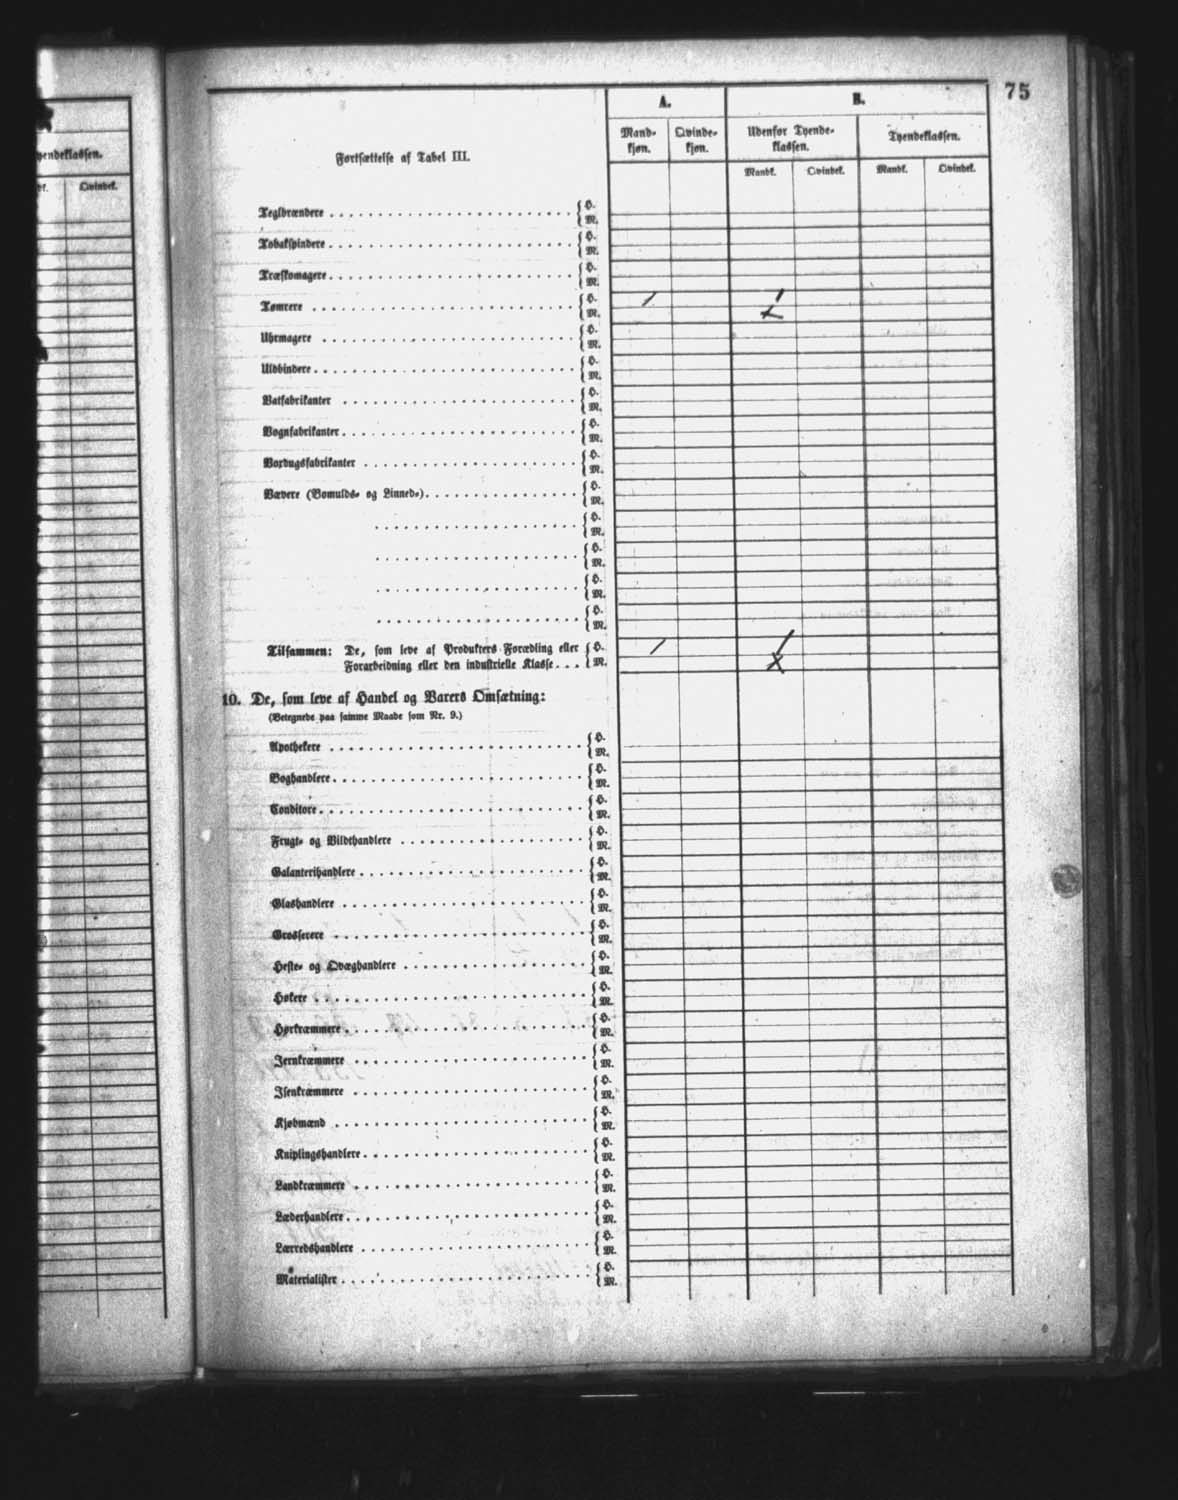 75
yendeklassen.
Qvindek.
A.
B.
Fortsættelse af Tabel III.
Mand-
kjøn.
Qvinde-
kjøn.
Udenfor Tyende-
klassen.
Tyendeklassen.
Mandk.
Qvindek.
Mandk.
Qvindek.
Teglbrændere { H.
M.
Tobakspindere { H.
M.
Træskomagere { H.
M.
Tømrere { H. / /
M.
Uhrmagere { H.
M.
Uldbindere { H.
M.
Vatfabrikanter { H.
M.
Vognfabrikanter { H.
M.
Voxdugsfabrikanter { H.
M.
Vævere (Bomulds- og Linned-) { H.
M.
{ H.
M.
{ H.
M.
{ H.
M.
{ H.
M.
Tilsammen: De, som leve af Produkters Forædling eller { H. / /
Forarbeidning eller den industrielle Klasse { M.
10. De, som leve af Handel og Varers Omsætning:
(Betegnede paa samme Maade som Nr. 9.)
Apothekere { H.
M.
Boghandlere { H.
M.
Conditore { H.
M.
Frugt- og Vildthandlere { H.
M.
Galanterihandlere { H.
M.
Glashandlere { H.
M.
Grosserere { H.
M.
Heste- og Qvæghandlere { H.
M.
Høkere { H.
M.
Hørkræmmere { H.
M.
Jernkræmmere { H.
M.
Isenkræmmere { H.
M.
Kjøbmænd { H.
M.
Kniplingshandlere { H.
M.
Landkræmmere { H.
M.
Læderhandlere { H.
M.
Lærredshandlere { H.
M.
Materialister { H.
M.